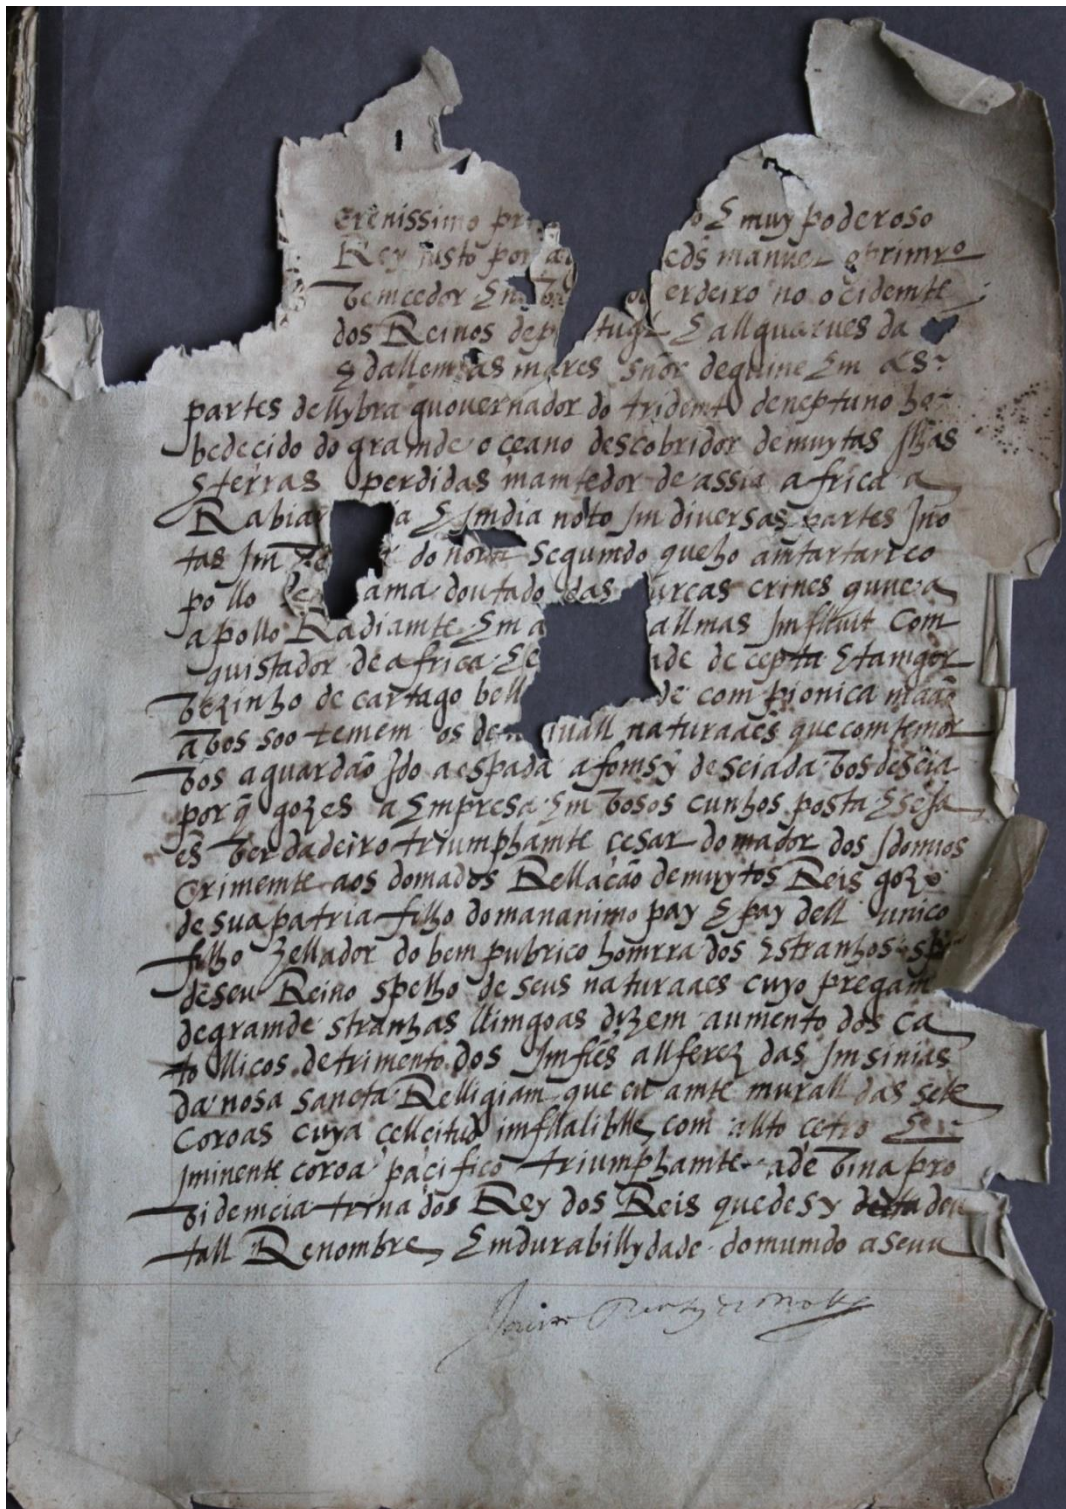 erenissimo pr o E muy poderoso
Rey justo por manuel o primro
vemcedor En erdeiro no ocidemte
dos Reinos de p tugl E allguarves da
E dallem as mares sñor de guine Em as
partes de llybra guovernador do tridemte de neptuno ho
bedecido do gramde oceano descobridor de muytas Jlhas
E terras perdidas mamtedor de assia africa a
Rabia a E Jmdia noto Jm diversas partes Jno
tas Jm do norte segumdo que ho amtartarico
pollo de ama doutado das urcas crines que a
apollo Radiamte Em a allmas Jmflluit Com
quistador de africa E de de cepta E tamger
vezinho de cartago bell de com pionica mãao
a vos soo temem os de naturaães que com temor
vos aguardão Jdo a espada afomsy deseiada vos deseia
por q̃ gozes a Empresa Em vosos cunhos posta E seja
es verdadeiro triumphamte cesar domador dos Jdomios
Crimemte aos domados Rellação de muytos Reis gozo
de sua patria filho do mananimo pay E pay dell unico
filho Zellador do bem pubrico homrra dos Estranhos
de seu Reino spelho de seus naturaaes cuyo pregam
de gramde stranhas llimgoas dizem aumento dos ca
tollicos detrimento dos Jmfiés allferez das Jmsinias
da nosa sancta Relligiam que en amte murall das sete
Coroas cuya cellcitud imfllaliblle com allto cetro
Jminente coroa pacifico triumphamte a de vina pro
videmcia trina dos Rey dos Reis que desy deu
tall Renombre Em durabillydade do mumdo a seuu